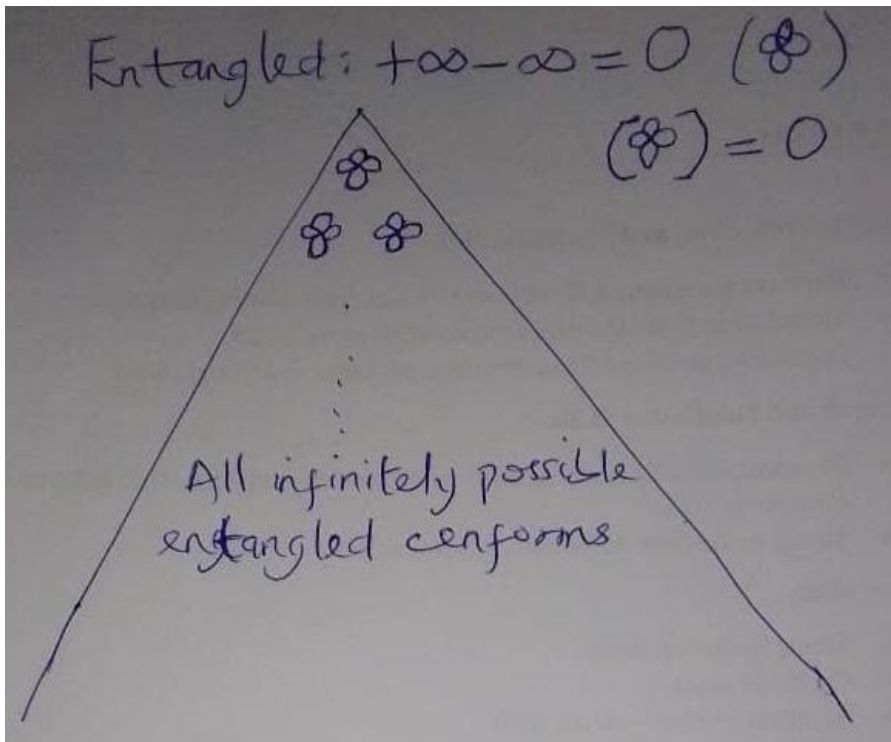 Entangled: +∞-∞ = 0 (ꕤ)
(ꕤ) = 0
All infinitely possible
entangled cenforms